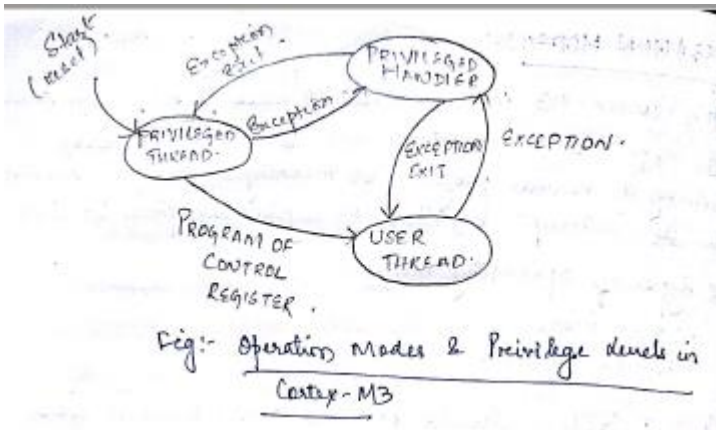 Start
(reset).
Exception
exit.
PRIVILEGED
HANDLER
PRIVILEGED
THREAD.
Exception
EXCEPTION
EXIT
EXCEPTION.
PROGRAM OF
CONTROL
REGISTER.
USER
THREAD.
Fig:- Operation Modes & Preivilege levels in
Cortex-M3